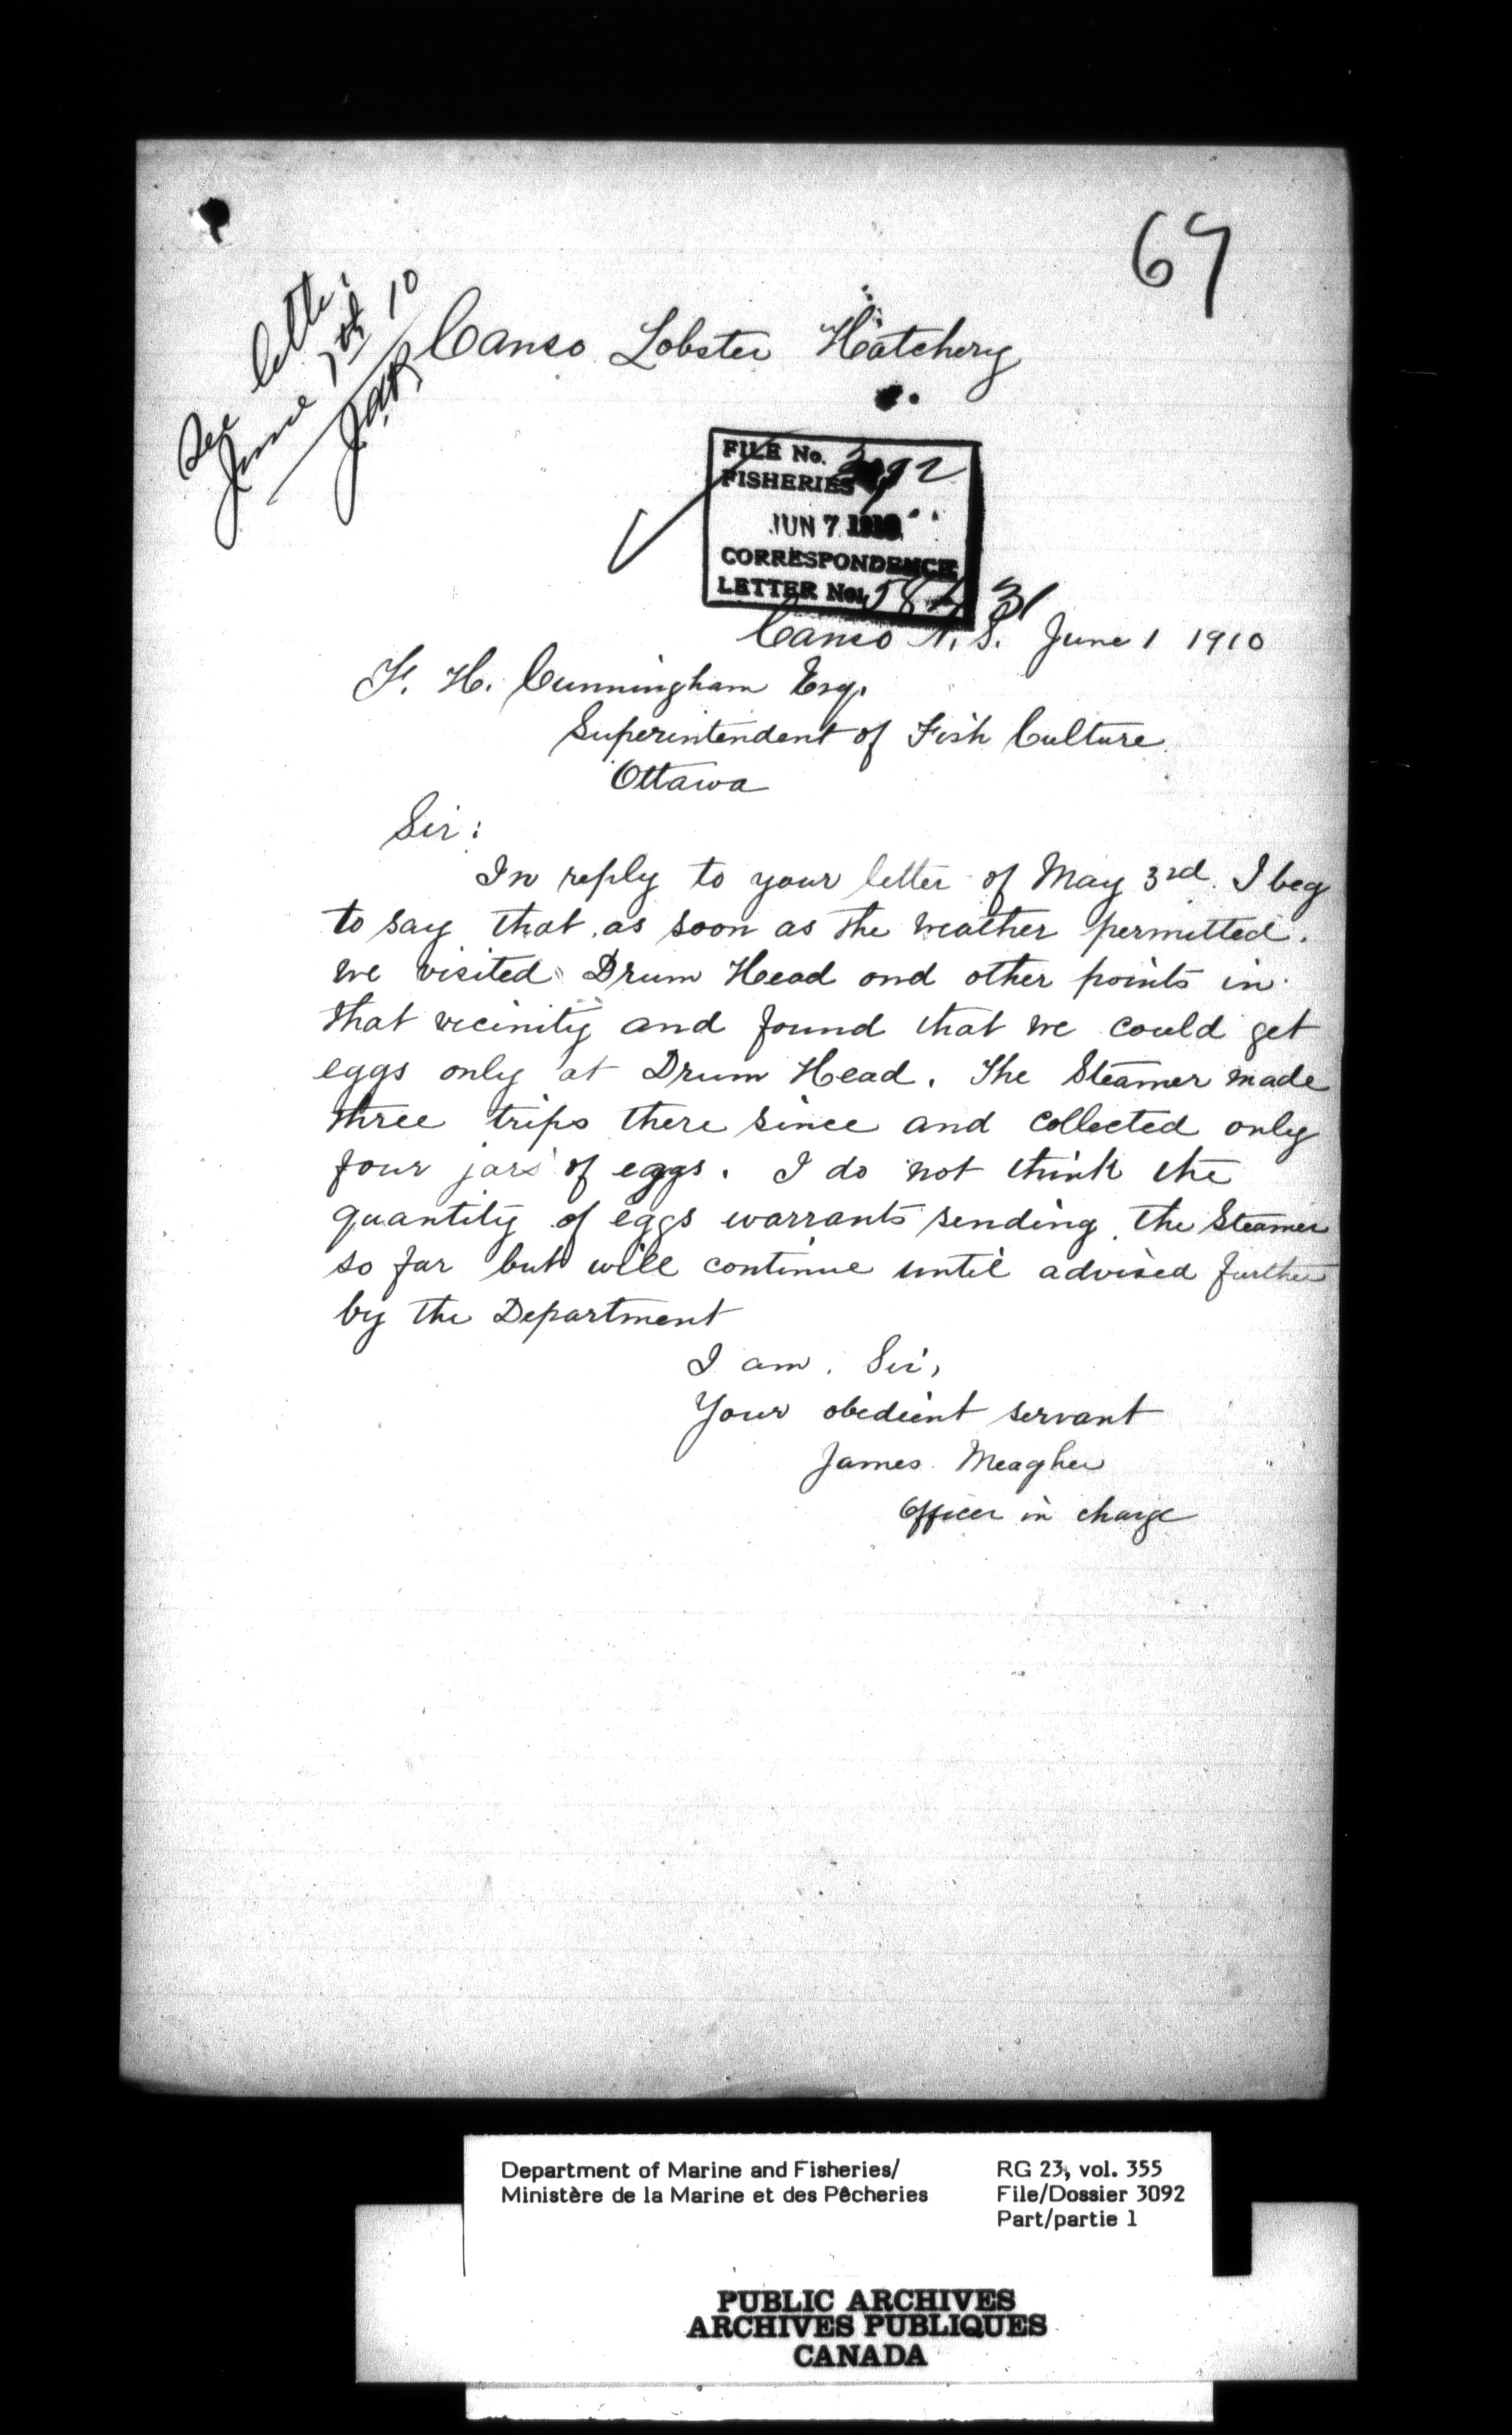 67
See letter
June 7th 10
Canso Lobster Hatchery
FILE No. 3092
FISHERIES
JUN 7 1910
CORRESPONDENCE
LETTER No.
Canso N.S. June 1 1910
F. H. Cunningham Esq.
Superintendent of Fish Culture
Ottawa
Sir:
In reply to your letter of May 3rd. I beg
to say that as soon as the weather permitted.
we visited Drum Head and other points in
that vicinity and found that we could get
eggs only at Drum Head. The Steamer made
three trips there since and collected only
four jars of eggs. I do not think the
quantity of eggs warrants sending the Steamer
so far but will continue until advised further
by the Department
I am. Sir,
Your obedient servant
James Meagher
Officer in charge
Department of Marine and Fisheries/
Ministère de la Marine et des Pêcheries
RG 23, vol. 355
File/Dossier 3092
Part/partie 1
PUBLIC ARCHIVES
ARCHIVES PUBLIQUES
CANADA